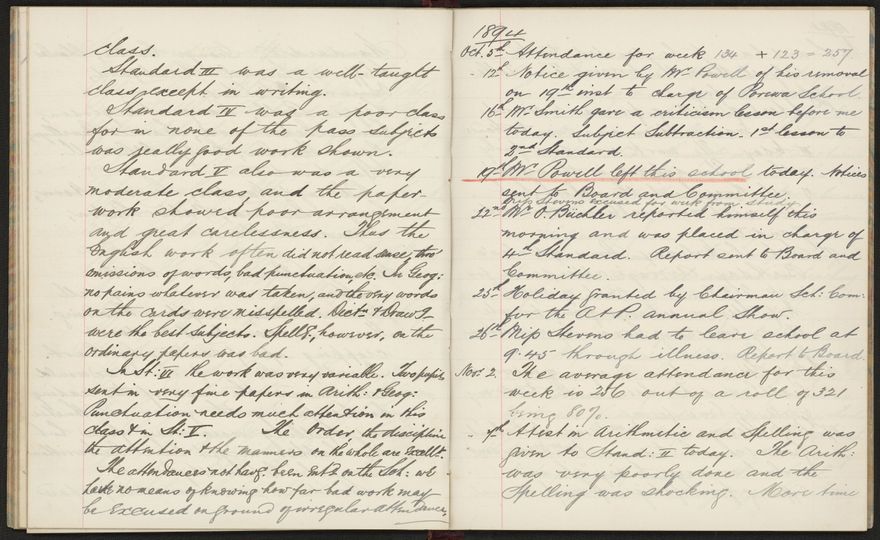 class.
Standard III was a well-taught
class, except in writing.
Standard IV was a poor class
for in none of the pass subjects
was really good work shown.
Standard V also was a very
moderate class, and the paper
work showed poor arrangement
and great carelessness. Thus the
English work often did not read sense, thro
omissions of words, bad punctuation etc. In Geog:
no pains whatever was taken, and the very words
on the cards were misspelled. Dict: & Draw
were the best subjects. Spellg., however, on the
ordinary papers was bad.
In St: VI the work was very variable. Two pupils
sent in very fine papers in Arith: & Geog:
Punctuation needs much attention in this
class & in St: V. The Order, the discipline
the attention & the manners on the whole are Excellt.
The attendances not havg. been Entd on the Sch: we
have no means of knowing how far bad work may
be Excused on ground of irregular attendance.
1894
Oct. 5th Attendance for week 134 + 123 = 257
" 12th Notice given by Mr Powell of his removal
on 19th inst to charge of Porewa School.
16th Mr Smith gave a criticism lesson before me
today. Subject Subtraction. 1st lesson to
2nd Standard.
19th Mr Powell left this school today. Notices
sent to Board and Committee.
Miss Stevens excused for week from study
22nd Mr O. Buchler reported himself this
morning and was placed in charge of
4th Standard. Report sent to Board and
Committee.
25th Holiday granted by Chairman Sch: Com:
for the A & P. annual Show.
26th Miss Stevens had to leave school at
9.45 through illness. Report to Board.
Nov. 2. The average attendance for this
week is 256 out of a roll of 321
being 80%.
" 7th A test in Arithmetic and Spelling was
given to Stand: II today. The Arith:
was very poorly done and the
Spelling was shocking. More time